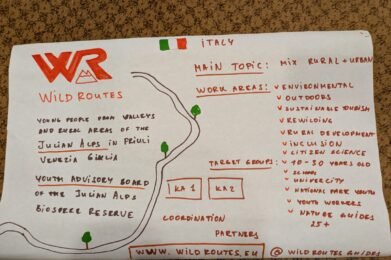 ITALY
WR
WILD ROUTES
YOUNG PEOPLE FROM VALLEYS
AND RURAL AREAS OF THE
JULIAN ALPS IN FRIULI
VENEZIA GIULIA
YOUTH ADVISORY BOARD
OF THE JULIAN ALPS
BIOSPERE RESERVE
MAIN TOPIC: MIX RURAL + URBAN
WORK AREAS: ✓ ENVIRONMENTAL
✓ OUTDOORS
✓ SUSTAINABLE TOURISM
✓ REWILDING
✓ RURAL DEVELOPMENT
✓ INCLUSION
✓ CITIZEN SCIENCE
TARGET GROUPS: ✓ 10-30 YEARS OLD
✓ SCHOOL
✓ UNIVERCITY
✓ NATIONAL PARK YOUTH
✓ YOUTH WORKERS
✓ NATURE GUIDES
25+
KA1 KA2
COORDINATION
PARTNERS
WWW.WILDROUTES.EU
@ WILD ROUTES GUIDES